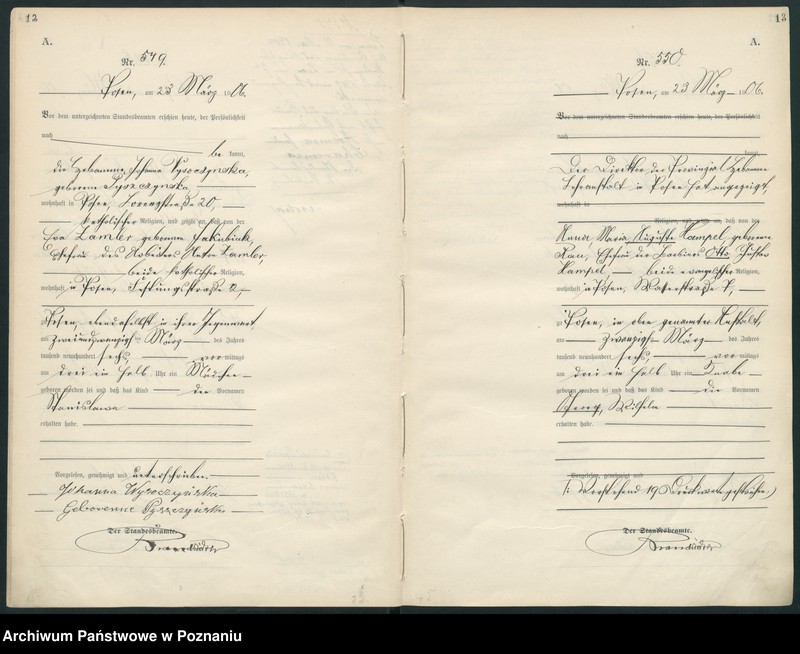 12
A.
Nr. 549.
Posen, am 23 März 1906.
Vor dem unterzeichneten Standesbeamten erschien heute, der Persönlichkeit
nach
be kannt,
die Hebamme Johanna Wysoczynska,
geborene
wohnhaft in Posen, 20
katholischer Religion, und zeigte an, daß von der
Eva Lamler geborenen Jakubiak,
Ehefrau des Arbeiters Anton Lamler,
beide katholischer Religion,
wohnhaft in Posen, 2,
zu Posen, ebendaselbst in ihrer Gegenwart,
am zweiundzwanzigsten März des Jahres
tausend neunhundert sechs, vor mittags
um drei ein halb Uhr ein Mädchen
geboren worden sei und daß das Kind den Vornamen
Stanislawa
erhalten habe.
Vorgelesen, genehmigt und unterschrieben.
Johanna Wysoczyńska
Geborenne
Der Standesbeamte.
13
A.
Nr. 550.
Posen, am 23 März 1906.
Vor dem unterzeichneten Standesbeamten erschien heute, der Persönlichkeit
nach
kannt,
Der Direktor der Provinzial Hebammen
Lehranstalt in Posen hat angezeigt,
wohnhaft in
Religion, und zeigte an, daß von der
Maria Auguste Hampel, geborenen
Rau, Ehefrau des Barbiers Otto Gustav
Hampel, beide evangelischer Religion,
wohnhaft in Posen, Wasserstraße 7,
zu Posen, in oben genannter Anstalt,
am zwanzigsten März des Jahres
tausend neunhundert sechs, vor mittags
um drei ein halb Uhr ein Knabe
geboren worden sei und daß das Kind die Vornamen
Georg, Wilhelm
erhalten habe.
Vorgelesen, genehmigt und
(: Vorstehend 19 Druckworte gestrichen.)
Der Standesbeamte.
Archiwum Państwowe w Poznaniu